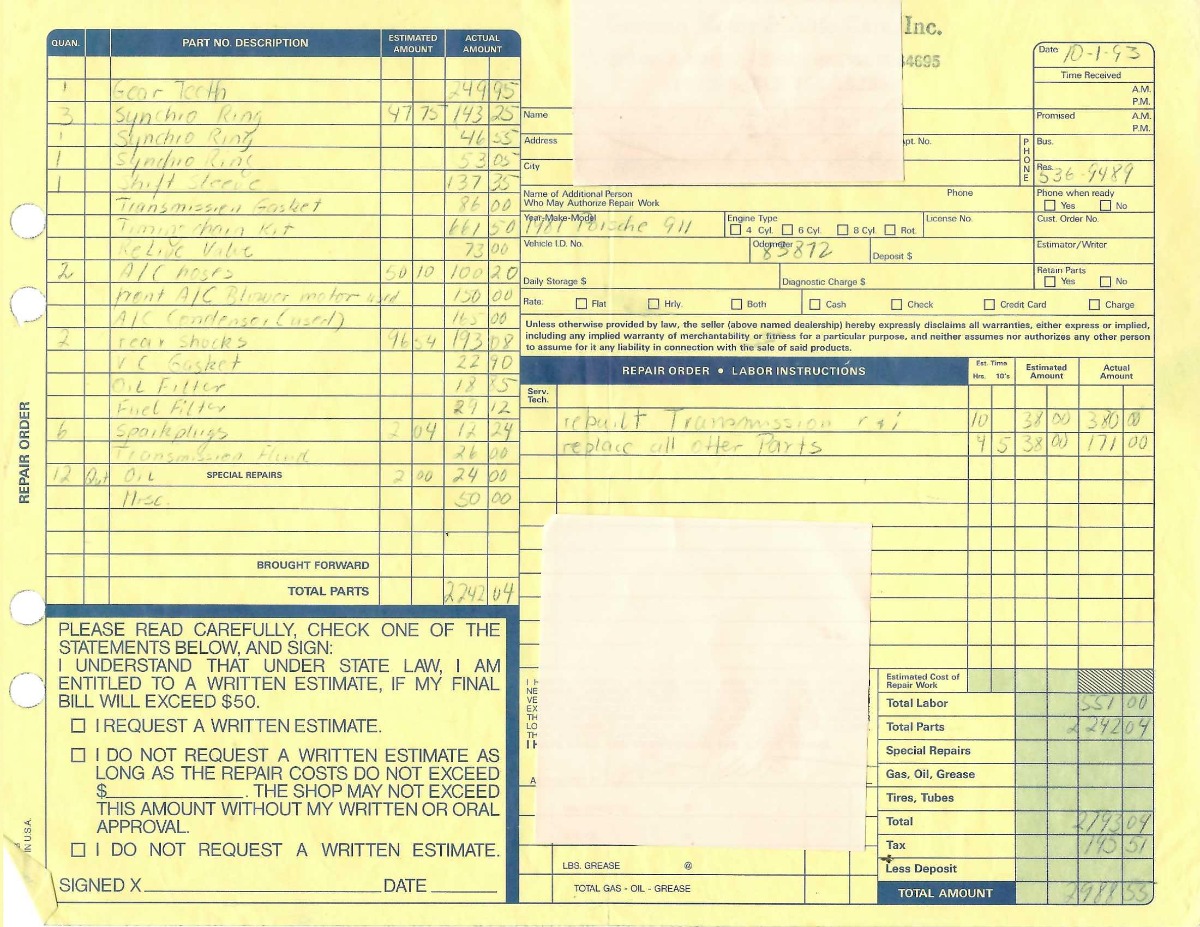 Inc.
34695
QUAN. PART NO. DESCRIPTION ESTIMATED AMOUNT ACTUAL AMOUNT
1 Gear Teeth 249 95
3 Synchro Ring 47 75 143 25
1 Synchro Ring 46 55
1 Synchro Ring 53 05
1 Shift Sleeve 137 35
Transmission Gasket 86 00
Timing chain Kit 661 50
Relive Valve 73 00
2 A/C hoses 50 10 100 20
front A/C Blower motor used 150 00
A/C Condenser (used) 165 00
2 rear shocks 96 54 193 08
V C Gasket 22 90
Oil Filter 18 85
Fuel Filter 29 12
6 Sparkplugs 2 04 12 24
Transmission Fluid 26 00
12 Qut Oil SPECIAL REPAIRS 2 00 24 00
Misc. 50 00
BROUGHT FORWARD
TOTAL PARTS 2242 04
REPAIR ORDER
IN U.S.A.
PLEASE READ CAREFULLY, CHECK ONE OF THE
STATEMENTS BELOW, AND SIGN:
I UNDERSTAND THAT UNDER STATE LAW, I AM
ENTITLED TO A WRITTEN ESTIMATE, IF MY FINAL
BILL WILL EXCEED $50.
I REQUEST A WRITTEN ESTIMATE.
I DO NOT REQUEST A WRITTEN ESTIMATE AS
LONG AS THE REPAIR COSTS DO NOT EXCEED
$ . THE SHOP MAY NOT EXCEED
THIS AMOUNT WITHOUT MY WRITTEN OR ORAL
APPROVAL.
I DO NOT REQUEST A WRITTEN ESTIMATE.
SIGNED X DATE
Date 10-1-93
Time Received
A.M.
P.M.
Name Promised A.M.
P.M.
Address pt. No. PHONE Bus.
City Res. 536-9489
Name of Additional Person Phone Phone when ready
Who May Authorize Repair Work Yes No
Year-Make-Model 1987 Porsche 911 Engine Type License No. Cust. Order No.
4 Cyl. 6 Cyl. 8 Cyl. Rot.
Vehicle I.D. No. Odometer 83812 Deposit $ Estimator/Writer
Daily Storage $ Diagnostic Charge $ Retain Parts
Yes No
Rate: Flat Hrly. Both Cash Check Credit Card Charge
Unless otherwise provided by law, the seller (above named dealership) hereby expressly disclaims all warranties, either express or implied,
including any implied warranty of merchantability or fitness for a particular purpose, and neither assumes nor authorizes any other person
to assume for it any liability in connection with the sale of said products.
REPAIR ORDER • LABOR INSTRUCTIONS Est. Time Hrs. 10's Estimated Amount Actual Amount
Serv. Tech.
rebuilt Transmission r+i 10 38 00 380 00
replace all otter Parts 4 5 38 00 171 00
I H
NE
VE
EX
TH
LO
TH
I H
A
LBS. GREASE @
TOTAL GAS - OIL - GREASE
Estimated Cost of Repair Work
Total Labor 551 00
Total Parts 2242 04
Special Repairs
Gas, Oil, Grease
Tires, Tubes
Total 2793 04
Tax 195 51
Less Deposit
TOTAL AMOUNT 2988 55